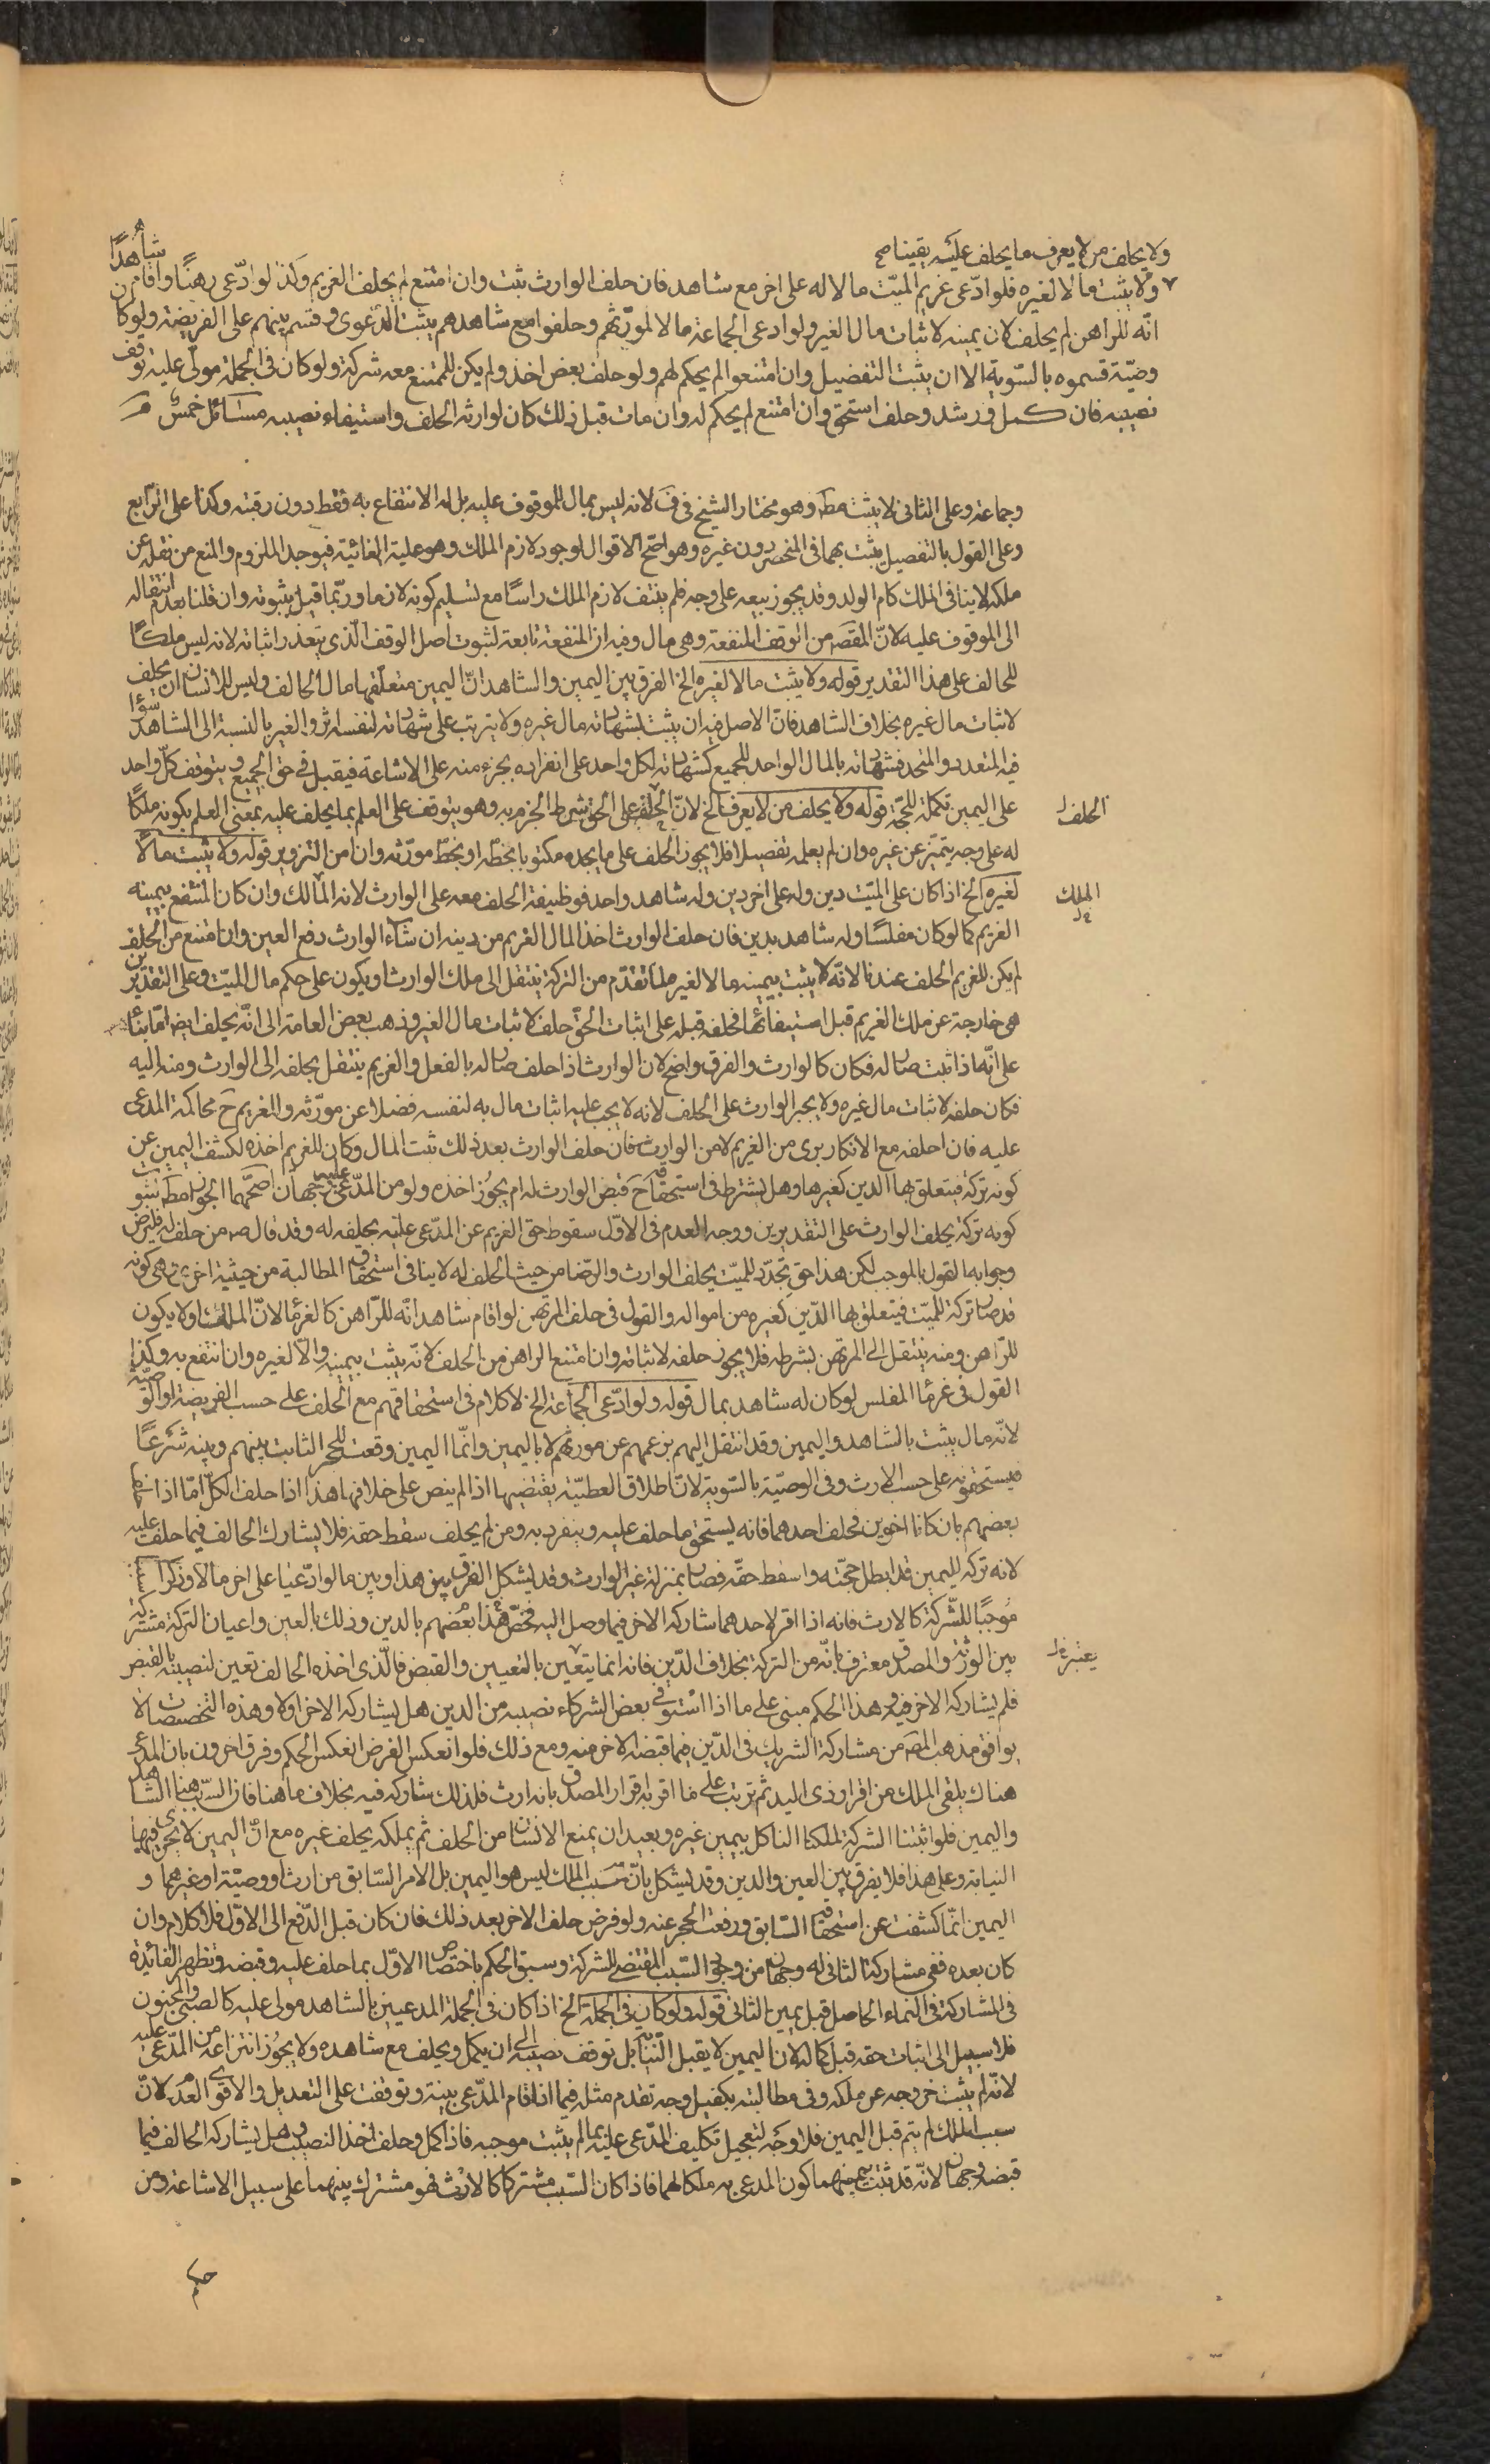 ولا يحلف من لا يعرف ما يحلف عليه يقينا صح
ولا يثبت مالا لغيره فلو ادّعى غريم الميّت مالا له على اخر مع شاهد فان حلف الوارث ثبت وان امتنع لم يحلف الغريم وكذا لو ادّعى رهنًا واقام شاهدًا
انّه للراهن لم يحلف لان يمينه لاثبات مال الغير ولو ادعى الجماعة مالا لمورّثهم وحلفوا مع شاهدهم يثبت الدّعوى وقسم بينهم على الفريضة ولو كان
وصيّة قسموه بالسّوية الا ان يثبت التفضيل وان امتنعوا لم يحكم لهم ولو حلف بعض اخذ ولم يكن للممتنع معه شركة ولو كان في الجملة مولّى عليه توقف
نصيبه فان كمل ورشد وحلف استحق وان امتنع لم يحكم له وان مات قبل ذلك كان لوارثه الحلف واستيفاء نصيبه مسائل خمس
وجماعة وعلى الثاني لا يثبت مط وهو مختار الشيخ في ف لانه ليس بمال للموقوف عليه بل له الانتفاع به فقط دون رقبته وكذا على الرّابع
وعلى القول بالتفصيل يثبت بهما في المنحصر دون غيره وهو اصّح الاقوال لوجود لازم الملك وهو علية الغائية فيوجد الملزوم والمنع من نقله عن
ملكه لا ينافى الملك كام الولد وقد يجوز بيعه على وجه فلم ينتف لازم الملك راسًا مع تسليم كونه لازما وربّما قيل بثبوته وان قلنا بعدم انتقاله
الى الموقوف عليه لانّ المقصَ من الوقف المنفعة وهى مال وفيه ان المنفعة تابعة لثبوت اصل الوقف الّذى يتعذر اثباته لانه ليس ملكًا
للحالف على هذا التقدير قوله ولا يثبت مالا لغيره الخ الفرق بين اليمين والشاهد انّ اليمين متعلّقها مال الحالف وليس للانسان ان يحلف
لاثبات مال غيره بخلاف الشاهد فانّ الاصل فيه ان يثبت بشهادته مال غيره ولا يترتب على شهادته لنفسه اثر والغير بالنسبة الى الشاهد سواء
فيه المتعدد والمتحد فشهادته بالمال الواحد للجميع كشهادته لكل واحد على انفراده بجزء منه على الاشاعة فيقبل في حق الجميع ويتوقف كلّ واحد
على اليمين تكملة للحجّة قوله ولا يحلف من لا يعرف الخ لانّ الحلف على الحق شرط الجزم به وهو يتوقف على العلم بما يحلف عليه بمعنى العلم بكونه ملكًا
الحلف
له على وجه يتميّز عن غيره وان لم يعلمه تفصيلا فلا يجوز الحلف على ما يجده مكتوبا بخطّه او بخطّ مورّثه وان امن التزوير قوله ولا يثبت مالًا
لغيره الخ اذا كان على الميّت دين وله على اخر دين وله شاهد واحد فوظيفة الحلف معه على الوارث لانه المالك وان كان المنتفع بيمينه
الملك
الغريم كما لو كان مفلسًا وله شاهد بدين فان حلف الوارث اخذ المال الغريم من دينه ان شاء الوارث دفع العين وان امتنع من الحلف
لم يكن للغريم الحلف عندنا لانّه لا يثبت بيمينه مالا لغير ملما تقدّم من التركة ينتقل الى ملك الوارث او يكون على حكم مال الميّت وعلى التقديرين
هى خارجة عن ملك الغريم قبل استيفائها فحلفه قبله على اثبات الحق حلف لاثبات مال الغير وذهب بعض العامة الى انّه يحلف
على انّه اذا ثبت صار له فكان كالوارث والفرق واضح لان الوارث اذا حلف صار له بالفعل والغريم ينتقل بحلفه الى الوارث ومنه اليه
فكان حلفه لاثبات مال غيره ولا يجبر الوارث على الحلف لانه لا يجب عليه اثبات مال به لنفسه فضلا عن مورّثه وللغريم حَ محاكمة المدعى
عليه فان احلفه مع الانكار برى من الغريم لا من الوارث فان حلف الوارث بعد ذلك ثبت المال وكان للغريم اخذه لكشف اليمين عن
كونه تركة فيتعلق بها الدين كغيرها وهل يشترط في استحقاقه حَ قبض الوارث له ام يجوز اخذه ولو من المدّعى عليه وجهان اصحّهما الجواز مط لثبوت
كونه تركة بحلف الوارث على التقديرين ووجه العدم في الاوّل سقوط حق الغريم عن المدّعى عليه بحلفه له وقد قال ص من حلف له فليرض
وجوابه القول بالموجب لكن هذا حق تجدّد للميّت بحلف الوارث والرّضا من حيث الحلف له لا ينافى استحقاق المطالبة من حيثية اخرى وهى كونه
قد صار تركة للميّت فيتعلق بها الدّين كغيره من امواله والقول في حلف المرتهن لو اقام شاهدا انّه للرّاهن كالغرماء لانّ الملك اولا يكون
للرّاهن ومنه ينتقل الى المرتهن بشرطه فلا يجوز حلفه لاثباته وان امتنع الراهن من الحلف لانّه يثبت بيمينه مالا لغيره وان انتفع به وكذا
القول في غرماء المفلس لو كان له شاهد بمال قوله ولو ادّعى الجماعة الخ لا كلام في استحقاقهم مع الحلف على حسب الفريضة او الوصيّة
لانّه مال يثبت بالشاهد واليمين وقد انتقل اليهم بزعمهم عن مورثهم لا باليمين وانّما اليمين وقعت للحجر الثابت بينهم وبينه شرعًا
فيستحقونه على حسب الارث وفى الوصيّة بالسّوية لانّ اطلاق العطيّة يقتضيها اذا لم ينص على خلافها هذا اذا حلف الكلّ امّا اذا
بعضهم بان كانا اخوين فحلف احدهما فانه يستحق ما حلف عليه وينفرد به ومن لم يحلف سقط حقه فلا يشارك الحالف فيما حلف عليه
لانه تركه لليمين قد ابطل حجّته واسقط حقّه فصار بمنزلة غير الوارث وقد يشكل الفرق بين هذا وبين ما لو ادّعيا على اخر مالا وذكرا
مُوجبًا للشّركة كالارث فانه اذا اقر لاحدهما شاركه الاخر فيما وصل اليه فخصّ هذا بعضهم بالدين وذلك بالعين واعيان التركة مشتركة
بين الورثة والمصدق معترف بانّه من التركة بخلاف الدّين فانه انما يتعيّن بالتعيين والقبض فالّذى اخذه الحالف تعين لنصيبه بالقبض
يعتبر
فلم يشاركه الاخر فيه وهذا الحكم مبنى على ما اذا استوفى بعض الشركاء نصيبه من الدين هل يشاركه الاخر او لا وهذه التخصيصات لا
يوافق مذهب المصَ من مشاركة الشريك في الدّين فيما قبضه الاخر منه ومع ذلك فلو انعكس الفرض انعكس الحكم وفرق اخرون بان المدّعى
هناك يلقى الملك من اقرار ذى اليد ثم ترتب على ما اقر به اقرار المصدق بانه ارث فلذلك شاركه فيه بخلاف ما هنا فانّ السّبب هنا الشاهد
واليمين فلو اثبتنا الشركة لملكنا الناكل بيمين غيره وبعيد ان يمنع الانسان من الحلف ثم يملكه بحلف غيره مع انّ اليمين لا يجرى فيها
النيابة وعلى هذا فلا يفرق بين العين والدين وقد يشكل بانّ سَبب الملك ليس هو اليمين بل الامر السّابق من ارث او وصيّة او غيرهما و
اليمين انّما كشفت عن استحقاقه السّابق ورفعت الحجر عنه ولو فرض حلف الاخر بعد ذلك فان كان قبل الدّفع الى الاوّل فلا كلام وان
كان بعده ففى مشاركة الثانى له وجهان من وجود السّبب المقتضى للشركة وسبق الحكم باختصاص الاوّل بما حلف عليه وقبضه وتظهر الفائدة
في المشاركة في النماء الحاصل قبل يمين الثانى قوله ولو كان في الجملة الخ اذا كان في الجملة المدعيين بالشاهد مولى عليه كالصبى والمجنون
فلا سبيل الى اثبات حقه قبل كماله لان اليمين لا يقبل النّيابة بل توقف نصيبه الى ان يكمل ويحلف مع شاهده ولا يجوز انتزاعه من المدّعى عليه
لانّه لم يثبت خروجه عن ملكه وفى مطالبته بكفيل وجه تقدم مثله فيما اذا اقام المدّعى بينة وتوقفت على التعديل والاقوى العدم لانّ
سبب الملك لم يتم قبل اليمين فلا وجه لتعجيل تكليف المدّعى عليه بما لم يثبت موجبه فاذا كمل وحلف اخذ النصيب وهل يشاركه الحالف فيما
قبضه وجهان لانّه قد ثبت بيمينهما كون المدعى به ملكا لهما فاذا كان السّبب مشتركا كالارث فهو مشترك بينهما على سبيل الاشاعة ومن